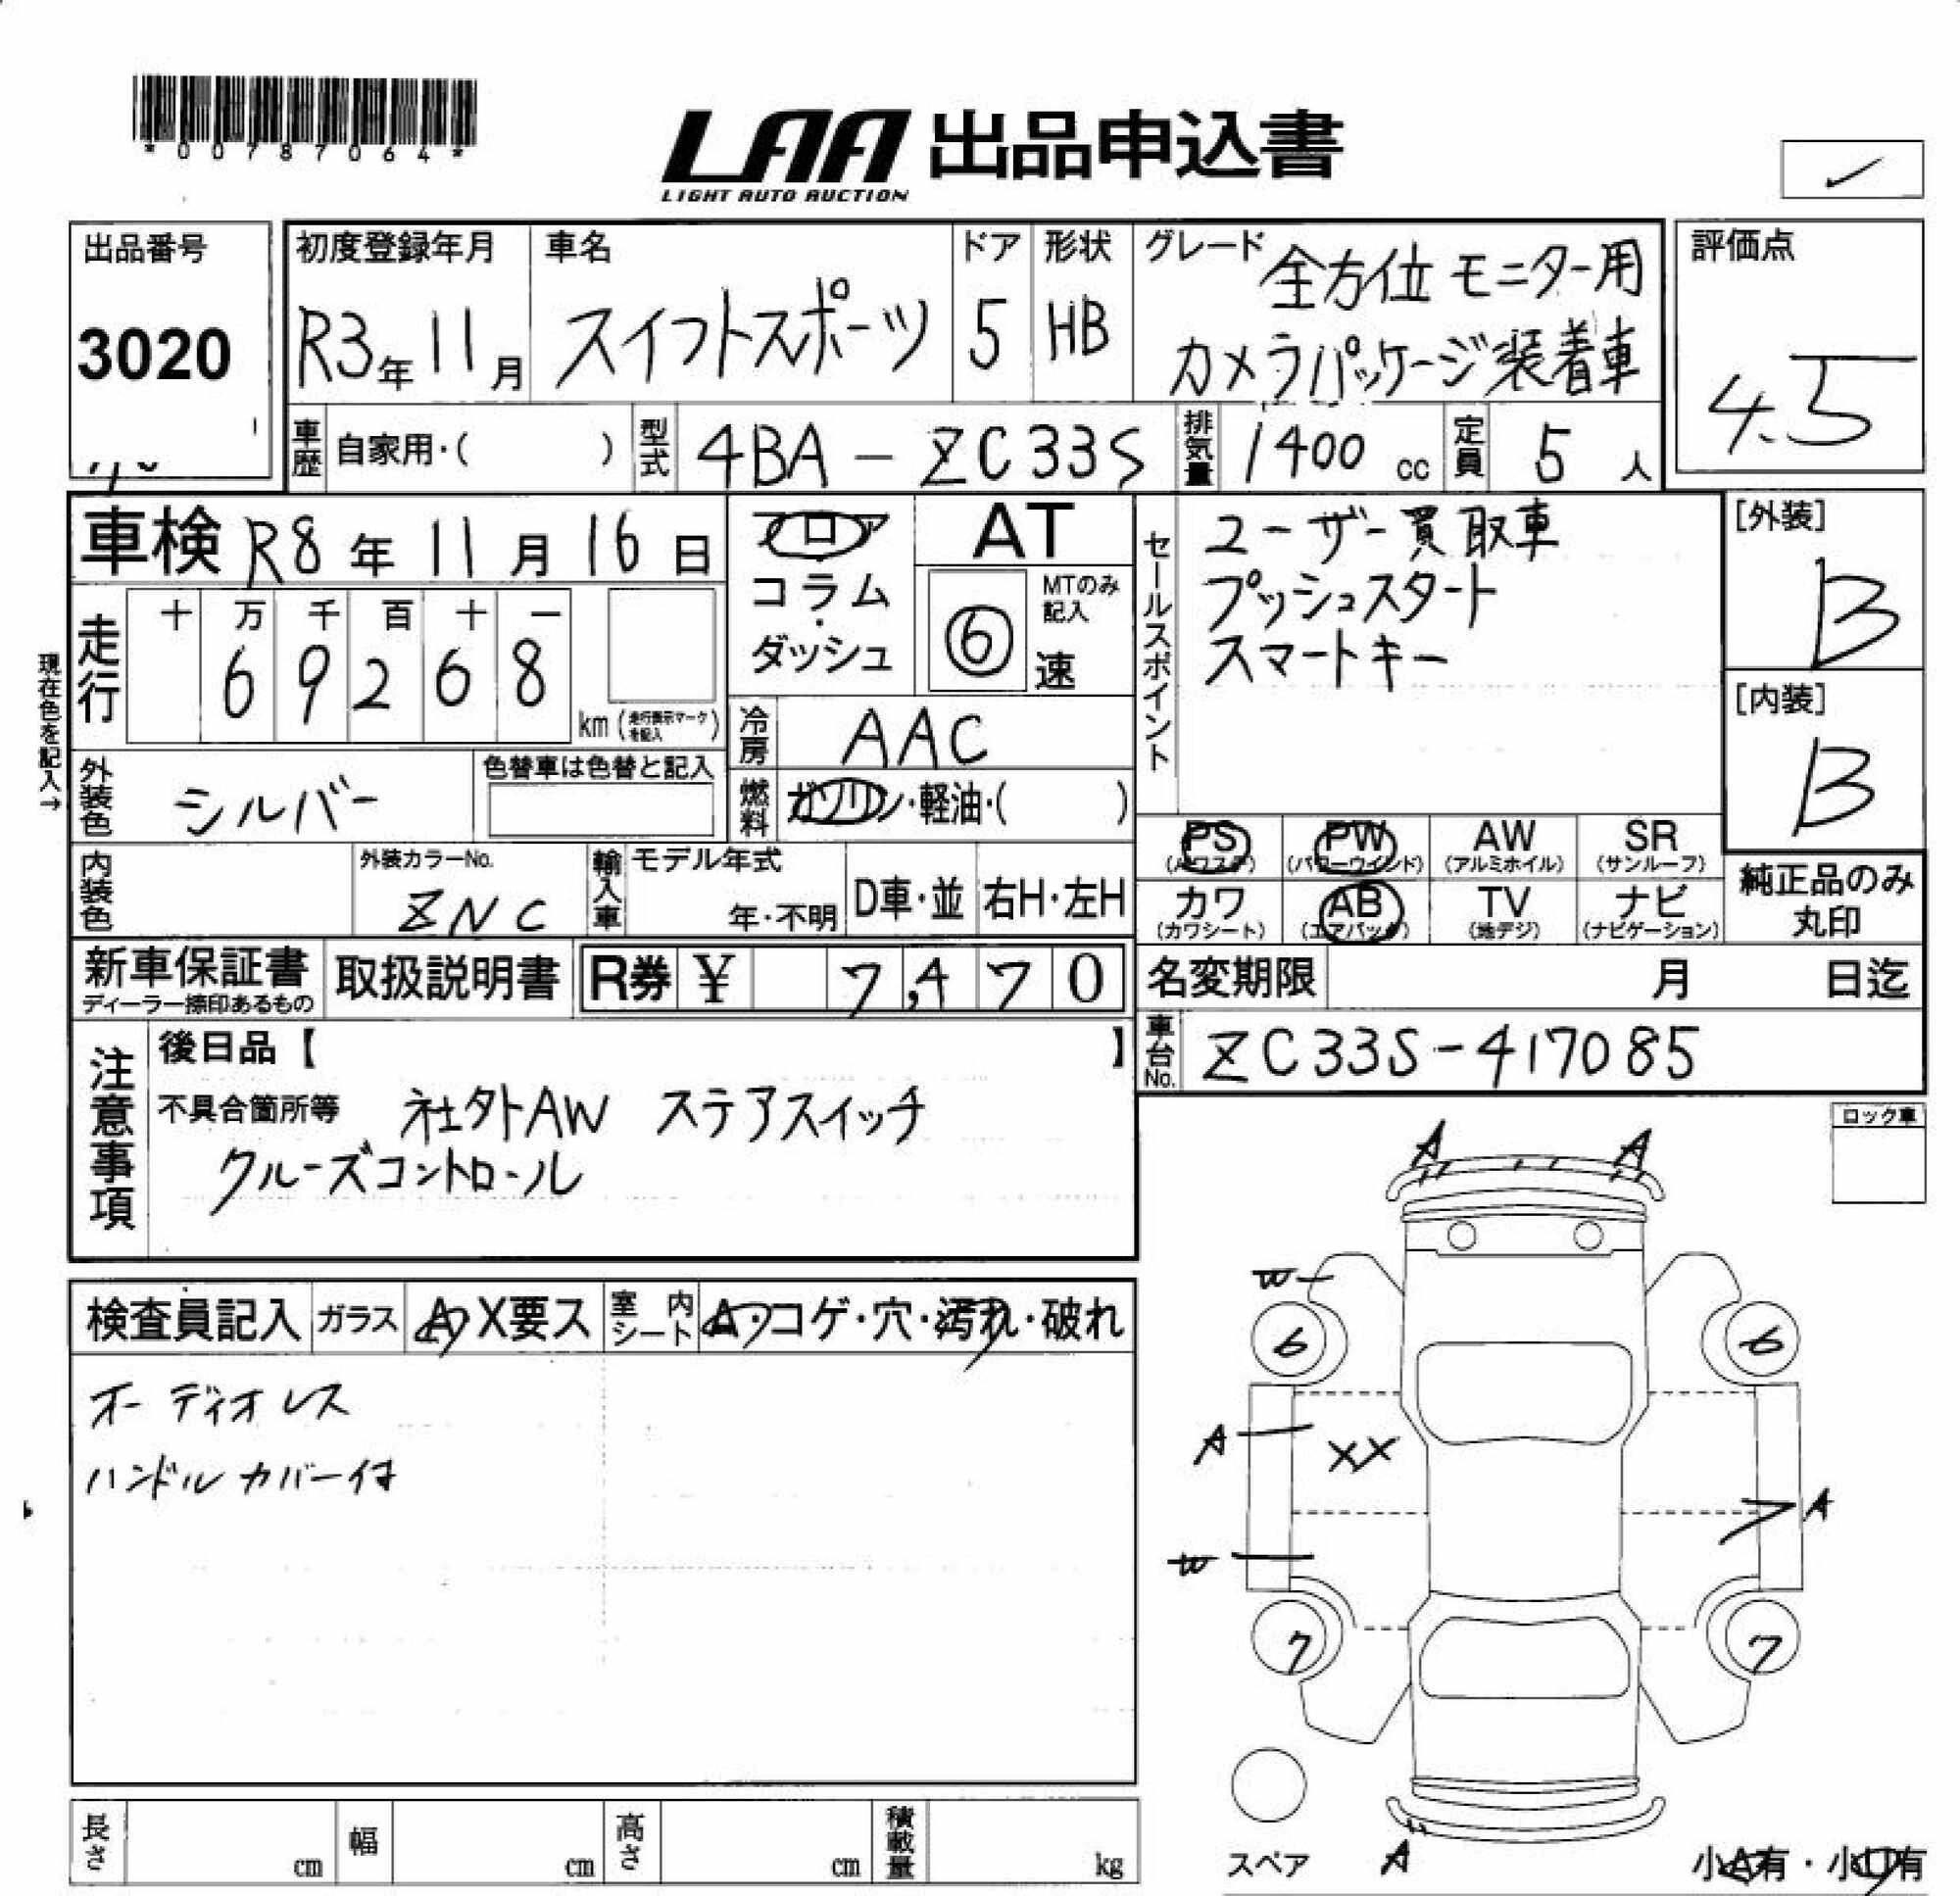 *00787064*
LAA 出品申込書
LIGHT AUTO AUCTION
出品番号
3020
初度登録年月
R3年11月
車名
スイフトスポーツ
ドア
5
形状
HB
グレード
全方位モニター用
カメラパッケージ装着車
評価点
4.5
車歴
自家用・( )
型式
4BA-ZC33S
排気量
1400 cc
定員
5人
車検 R8年11月16日
現在色を記入→
走行
十 万 千 百 十 一
6 9 2 6 8
km (走行表示マークを記入)
フロア
・
コラム
・
ダッシュ
AT
6
MTのみ記入
速
冷房
AAC
燃料
ガソリン・軽油・( )
外装色
シルバー
色替車は色替と記入
内装色
外装カラーNo.
ZNC
輸入車
モデル年式
年・不明
D車・並
右H・左H
セールスポイント
ユーザー買取車
プッシュスタート
スマートキー
[外装]
B
[内装]
B
PS (パワステ)
PW (パワーウインド)
AW (アルミホイル)
SR (サンルーフ)
カワ (カワシート)
AB (エアバック)
TV (地デジ)
ナビ (ナビゲーション)
純正品のみ
丸印
新車保証書
ディーラー捺印あるもの
取扱説明書
R券 ¥ 7,470
名変期限 月 日迄
車台No.
ZC33S-417085
注意事項
後日品【 】
不具合箇所等 社外AW ステアスイッチ
クルーズコントロール
ロック車
検査員記入
ガラス
A・X要ス
室内シート
A・コゲ・穴・汚れ・破れ
オーディオレス
ハンドルカバー付
A A
W
6 6
A XX
A
W
7 7
スペア
A
小A有・小凹有
長さ cm
幅 cm
高さ cm
積載量 kg